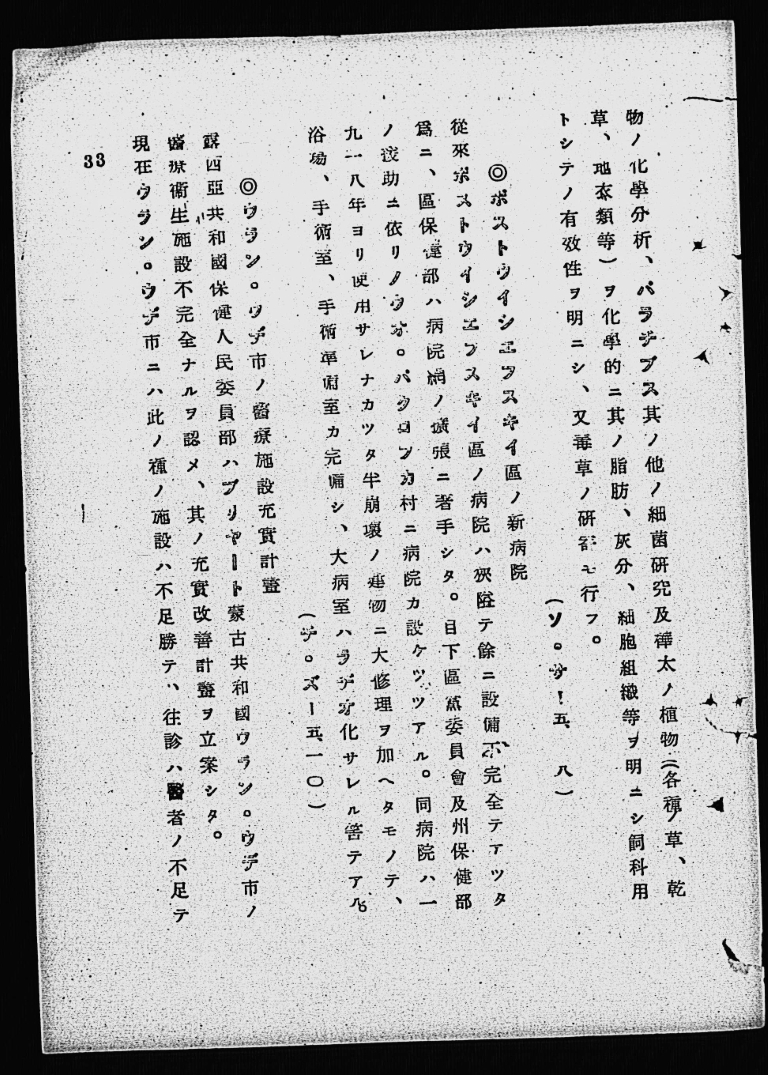 物ノ化學分析、パラチブス其ノ他ノ細菌研究及樺太ノ植物（各種ノ草、乾
草、地衣類等）ヲ化學的ニ其ノ脂肪、灰分、細胞組織等ヲ明ニシ飼料用
トシテノ有效性ヲ明ニシ、又毒草ノ研究モ行フ。
（ソ。サー五、八）
◎ポストウイシエフスキイ區ノ新病院
從來ポストウイシエフスキイ區ノ病院ハ狹隘テ餘ニ設備不完全テアツタ
爲ニ、區保健部ハ病院網ノ擴張ニ著手シタ。目下區黨委員會及州保健部
ノ援助ニ依リノヴオ。パクロフカ村ニ病院カ設ケツツアル。同病院ハ一
九一八年ヨリ使用サレナカツタ半崩壞ノ建物ニ大修理ヲ加ヘタモノテ、
浴場、手術室、手術準備室カ完備シ、大病室ハラヂオ化サレル筈テアル。
（チ。ズー五、一〇）
◎ウラン。ウデ市ノ醫療施設充實計畫
露西亞共和國保健人民委員部ハブリヤート蒙古共和國ウラン。ウデ市ノ
醫療衞生施設不完全ナルヲ認メ、其ノ充實改善計畫ヲ立案シタ。
現在ウラン。ウデ市ニハ此ノ種ノ施設ハ不足勝テ、往診ハ醫者ノ不足テ
33